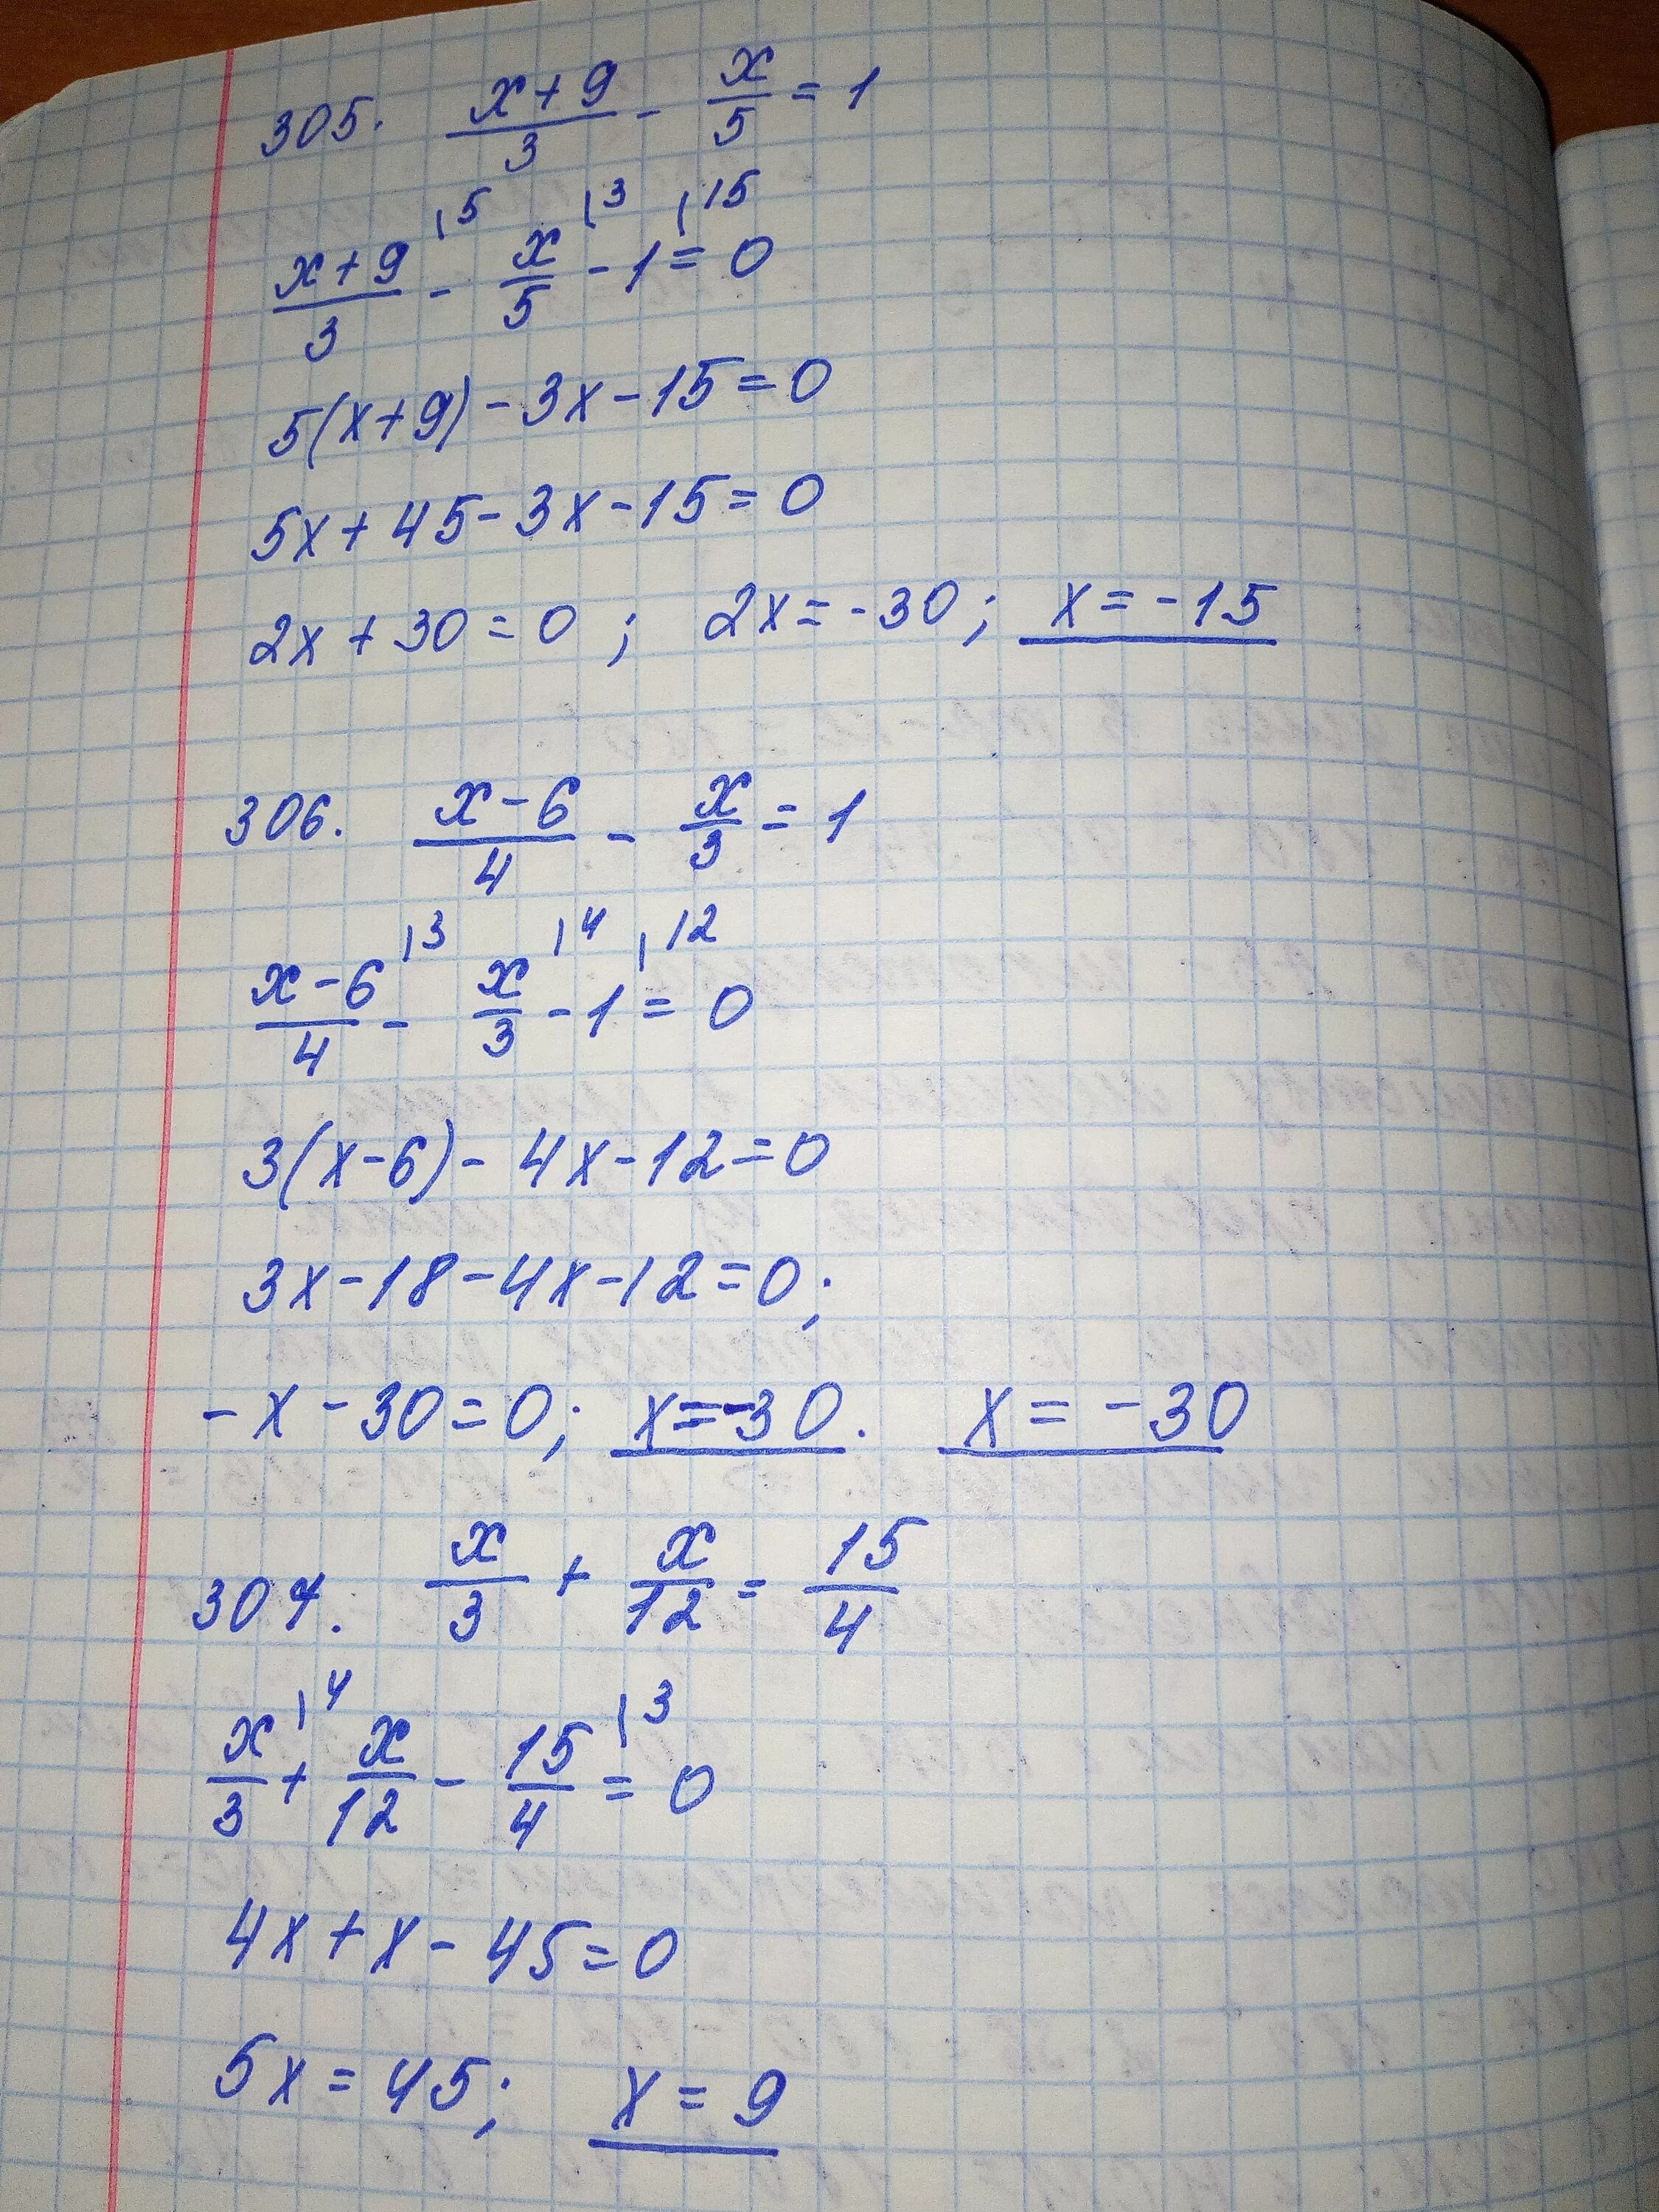 305. (x+9)/3 - x/5 = 1
(x+9)/3 \5 - x/5 \3 - 1 \15 = 0
5(x+9) - 3x - 15 = 0
5x + 45 - 3x - 15 = 0
2x + 30 = 0 ; 2x = -30 ; x = -15
306. (x-6)/4 - x/3 = 1
(x-6)/4 \3 - x/3 \4 - 1 \12 = 0
3(x-6) - 4x - 12 = 0
3x - 18 - 4x - 12 = 0 ;
-x - 30 = 0 ; x = -30. x = -30
307. x/3 + x/12 = 15/4
x/3 \4 + x/12 - 15/4 \3 = 0
4x + x - 45 = 0
5x = 45 ; x = 9